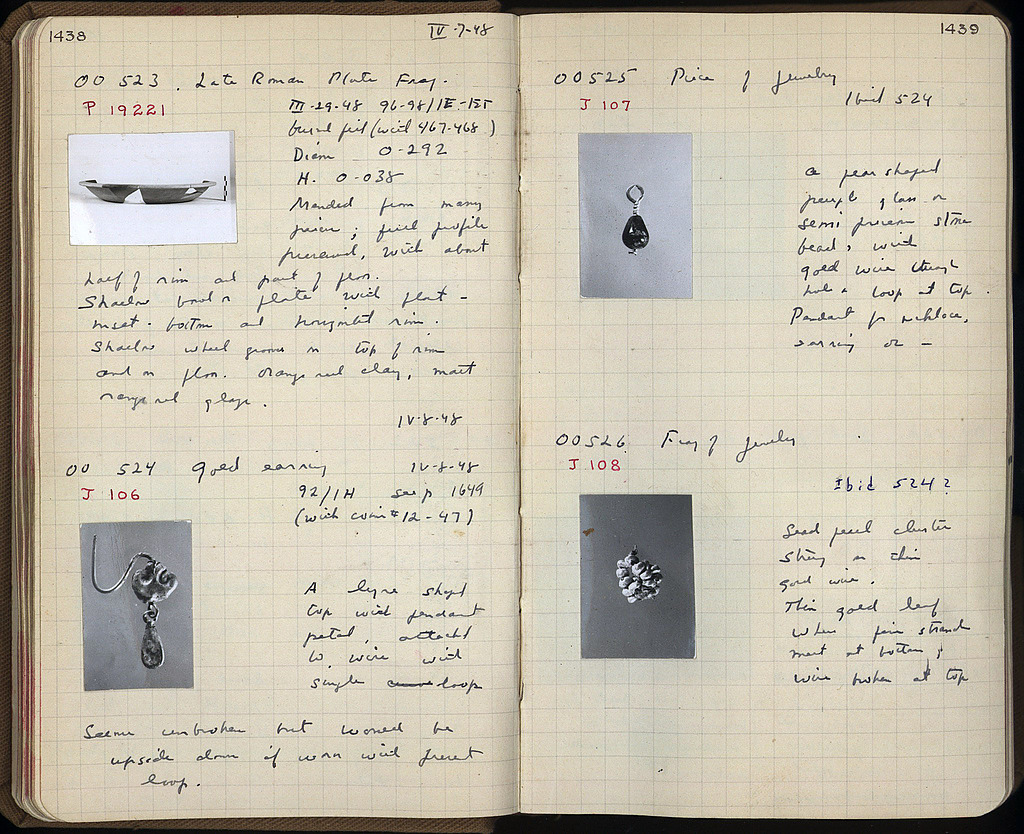 1438
IV-7-48
OO 523. Late Roman Plate Frag.
P 19221
III-29-48 96-98/ΙΕ-ΙΣΤ
burnt fill (with 467-468)
Diam 0-292
H. 0-038
Mended from many
pieces; full profile
preserved, with about
half of rim and part of floor.
Shallow bowl or plate with flat-
inset-bottom and horizontal rim.
Shallow wheel grooves on top of rim
and on floor. Orange red clay, matt
orange red glaze.
IV-8-48
OO 524 Gold earring IV-8-48
J 106
92/ΙΗ see p 1649
(with coin #12-47)
A lyre shaped
top with pendant
petal, attached
to wire with
single loop
Seems unbroken but would be
upside down if worn with present
loop.
1439
OO525 Piece of Jewelry
J 107
Ibid 524
a pear shaped
purple glass or
semi precious stone
bead, with
gold wire through
hole & loop at top.
Pendant for necklace,
earring or —
OO526 Frag of Jewelry
J 108
Ibid 524?
Seed pearl cluster
strung on thin
gold wire.
Thin gold leaf
where four strands
meet at bottom;
wire broken at top